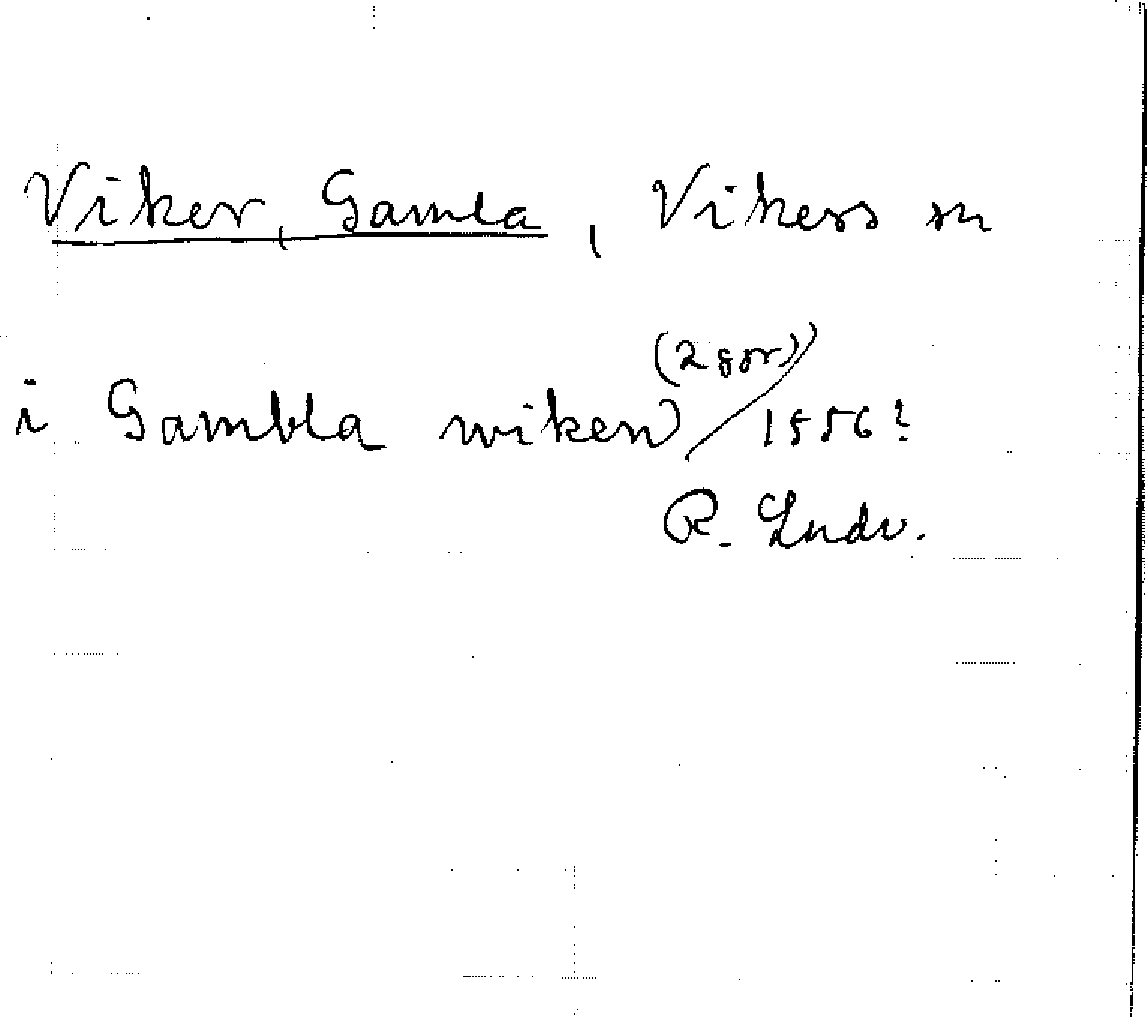 Viker, Gamla, Vikers sn
(2 ggr)
i Gambla wiken 1556?
R. Lndv.